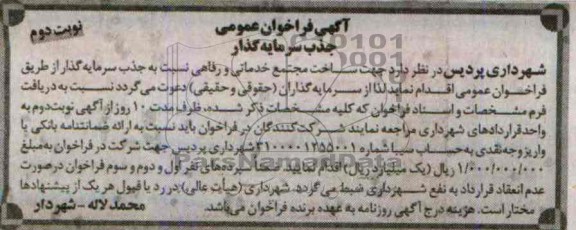 آگهی فراخوان عمومی
جذب سرمایه گذار
نوبت دوم
شهرداری پردیس در نظر دارد جهت ساخت مجتمع خدماتی و رفاهی نسبت به جذب سرمایه گذار از طریق
فراخوان عمومی اقدام نماید لذا از سرمایه گذاران (حقوقی و حقیقی) دعوت می گردد نسبت به دریافت
فرم مشخصات و اسناد فراخوان که کلیه مشخصات ذکر شده، ظرف مدت ۱۰ روز از آگهی نوبت دوم به
واحد قراردادهای شهرداری مراجعه نمایند شرکت کنندگان در فراخوان باید نسبت به ارائه ضمانتنامه بانکی یا
واریز وجه نقدی به حساب سیبا شماره ۳۱۰۰۰۰۱۲۵۵۰۰۱ شهرداری پردیس جهت شرکت در فراخوان به مبلغ
۱/۰۰۰/۰۰۰/۰۰۰ ریال (یک میلیارد ریال) اقدام نمایند. ضمنا سپرده های نفر اول و دوم و سوم فراخوان در صورت
عدم انعقاد قرارداد به نفع شهرداری ضبط می گردد. شهرداری (هیأت عالی) در رد یا قبول هر یک از پیشنهادها
مختار است. هزینه درج آگهی روزنامه به عهده برنده فراخوان می باشد.
محمد لاله - شهردار
ParsNamadData